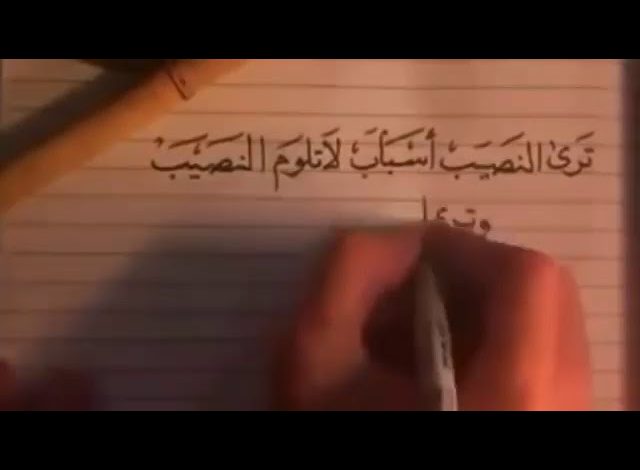 تَرىٰ النصَيَب أسَبَابَ لاَ تلومَ النصَيَبَ